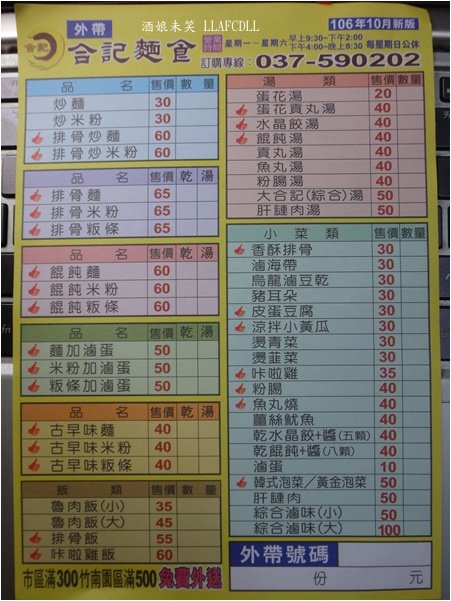 酒娘未笑 LLAFCDLL
106年10月新版
外帶
合記
合記麵食
星期一~星期六
早上9:30~下午2:00
下午4:00~晚上8:30
每星期日公休
訂購專線:037-590202
品名 售價 數量
炒麵 30
炒米粉 30
排骨炒麵 60
排骨炒米粉 60
品名 售價 乾 湯
排骨麵 65
排骨米粉 65
排骨粄條 65
品名 售價 乾 湯
餛飩麵 60
餛飩米粉 60
餛飩粄條 60
品名 售價 乾 湯
麵加滷蛋 50
米粉加滷蛋 50
粄條加滷蛋 50
品名 售價 乾 湯
古早味麵 40
古早味米粉 40
古早味粄條 40
飯類 售價 數量
魯肉飯(小) 35
魯肉飯(大) 45
排骨飯 55
咔啦雞飯 60
湯類 售價 數量
蛋花湯 20
蛋花貢丸湯 40
水晶餃湯 40
餛飩湯 40
貢丸湯 40
魚丸湯 40
粉腸湯 40
大合記(綜合)湯 50
肝腱肉湯 50
小菜類 售價 數量
香酥排骨 30
滷海帶 30
烏龍滷豆乾 30
豬耳朵 30
皮蛋豆腐 30
涼拌小黃瓜 30
燙青菜 30
燙韮菜 30
咔啦雞 35
粉腸 40
魚丸燒 40
薑絲魷魚 40
乾水晶餃+醬(五顆) 40
乾餛飩+醬(八顆) 40
滷蛋 10
韓式泡菜/黃金泡菜 50
肝腱肉 50
綜合滷味(小) 50
綜合滷味(大) 100
外帶號碼
份 元
市區滿300竹南園區滿500 免費外送